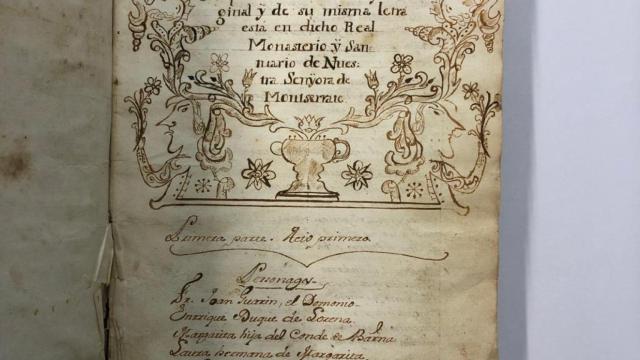 ginal y de su misma letra
está en dicho Real
Monasterio ÿ San-
tuario de Nues-
tra Senyora de
Montserrate
Primera parte. Acto primero.
Personages.
Fr. Joan Guarin, el Demonio
Enrrique Duque de Lorena
Margarita hija del Conde de Barna
Laura hermana de Margarita